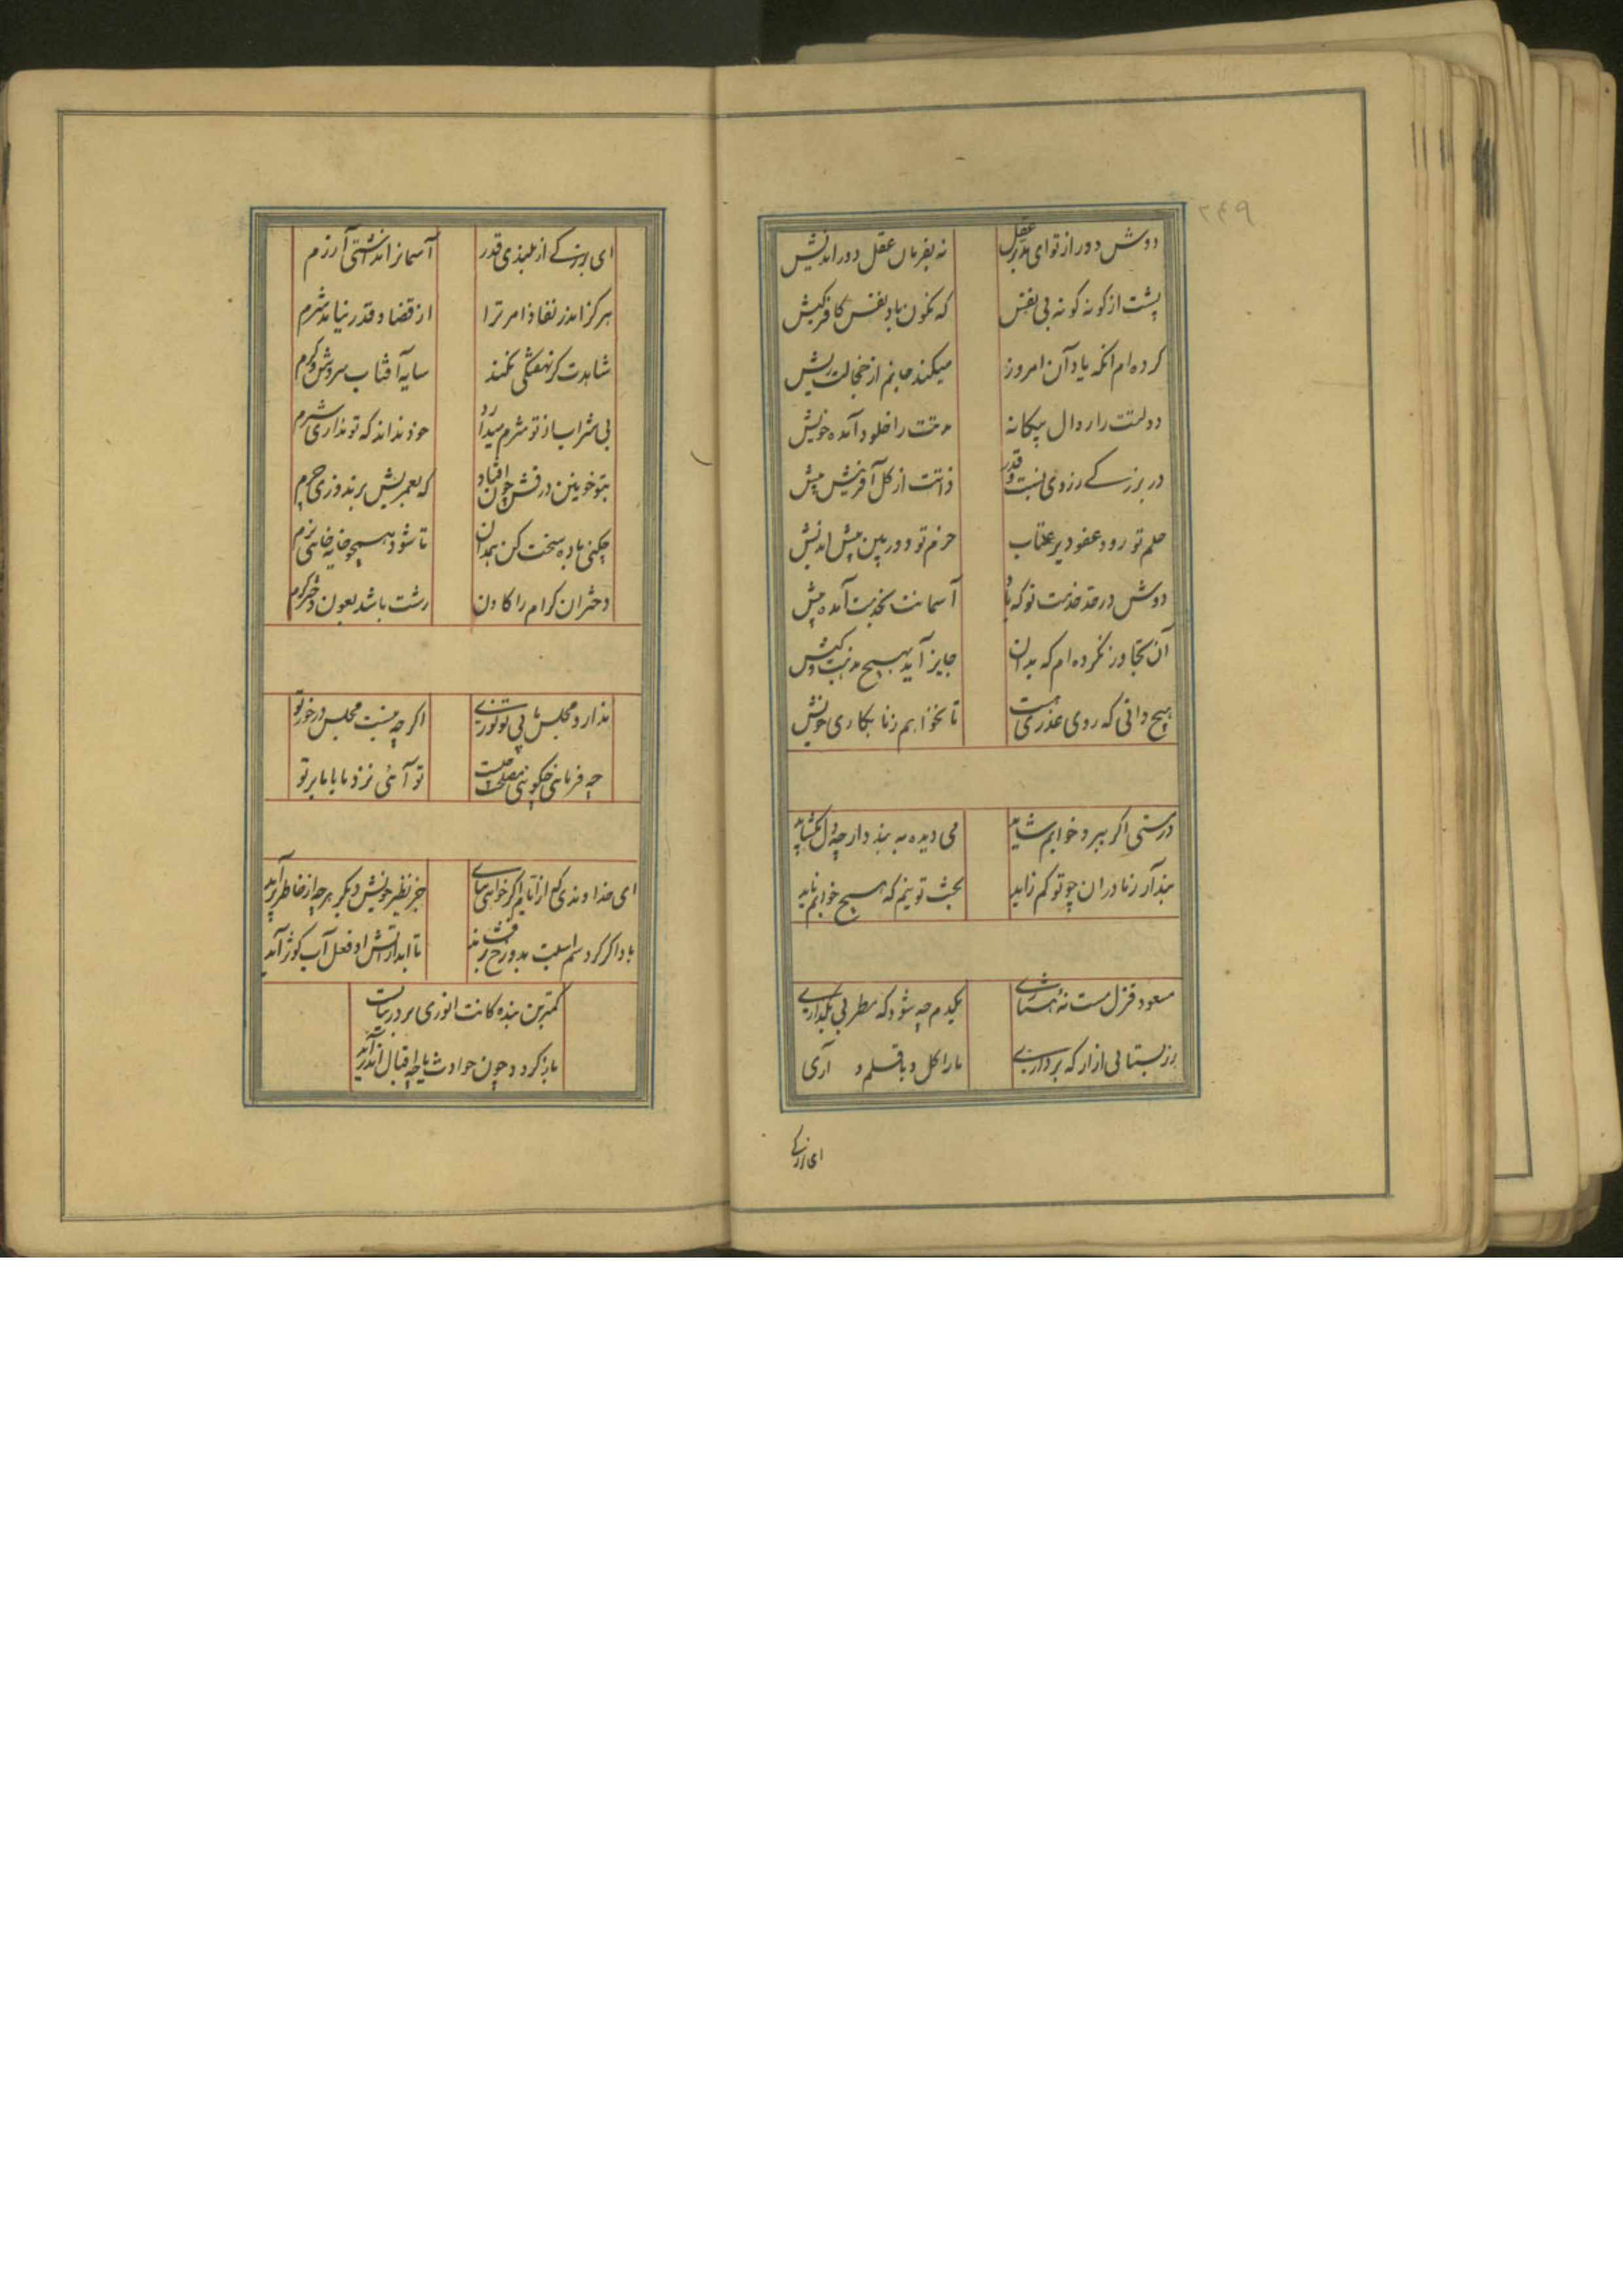 ۲۴۹
دوش دور از تو ای مدبر عقل نه بفرمان عقل دور اندیش
پشت از کونه کونه بی نفس که نکون باد نفس کافر کیش
کرده ام انکه یاد آن امروز میکند جانم از خجالت ریش
دولتت را زوال بیکانه مدتت را خلود آمده خویش
در بزرکے ز روی نسبت و قدر ذاتت از کل آفرینش بیش
حلم تو زود عفو دیر عتاب حزم تو دوربین پیش اندیش
دوش در خدمت تو که آسمانت بخدمت آمده پیش
آن تجاوز نکرده ام که بدان جایز آید بهیچ مذهب و کیش
هیچ دانی که روی عذری هست تا بخواهم ز نابکاری خویش
در مستی اکر ببرد خوابم شاید می دیده به بندد ارچه دل بکشاید
بیدار ز مادران چو تو کم زاید بخت تو نیم که هیچ خوابم ناید
مسعود قزل مست نهٔ هشیاری یکدم چه شود که مطربی بکذاری
زر بستانی ازار که برداری ما را کل و باقلی و آری
ای بزرکے
ای بزرکے از بلندی قدر آسمانرا نداشتی آزرم
هرکز اندر نفاذ امر ترا از قضا و قدر نیامد شرم
شاهدت کر نهفتکی نکند سایه آفتاب سردش و کرم
بی شراب از تو شرم میدارد خود نداند که تو نداری شرم
تا شود همچو خایه خایه نرم
دختران کرام را کادن زشت باشد بعون دختر کرم
ندارد مجلس ما بی تو نوری اکر چه نیست مجلس در خور تو
چه فرمائی چکوئی مصلحت چیست تو آئی نزد ما یا ما بر تو
ای خداوندی که از ایام اکر خواهی بیابی جز نظیر خویش دیکر هرچه از خاطر برآید
باد اکر کرد سم اسبت بدوزخ تا ابد از آتش او فعل آب کوثر آید
کمترین بنده کانت انوری بر در بپاست
باز کردد چون حوادث یا چو اقبال اندر آید